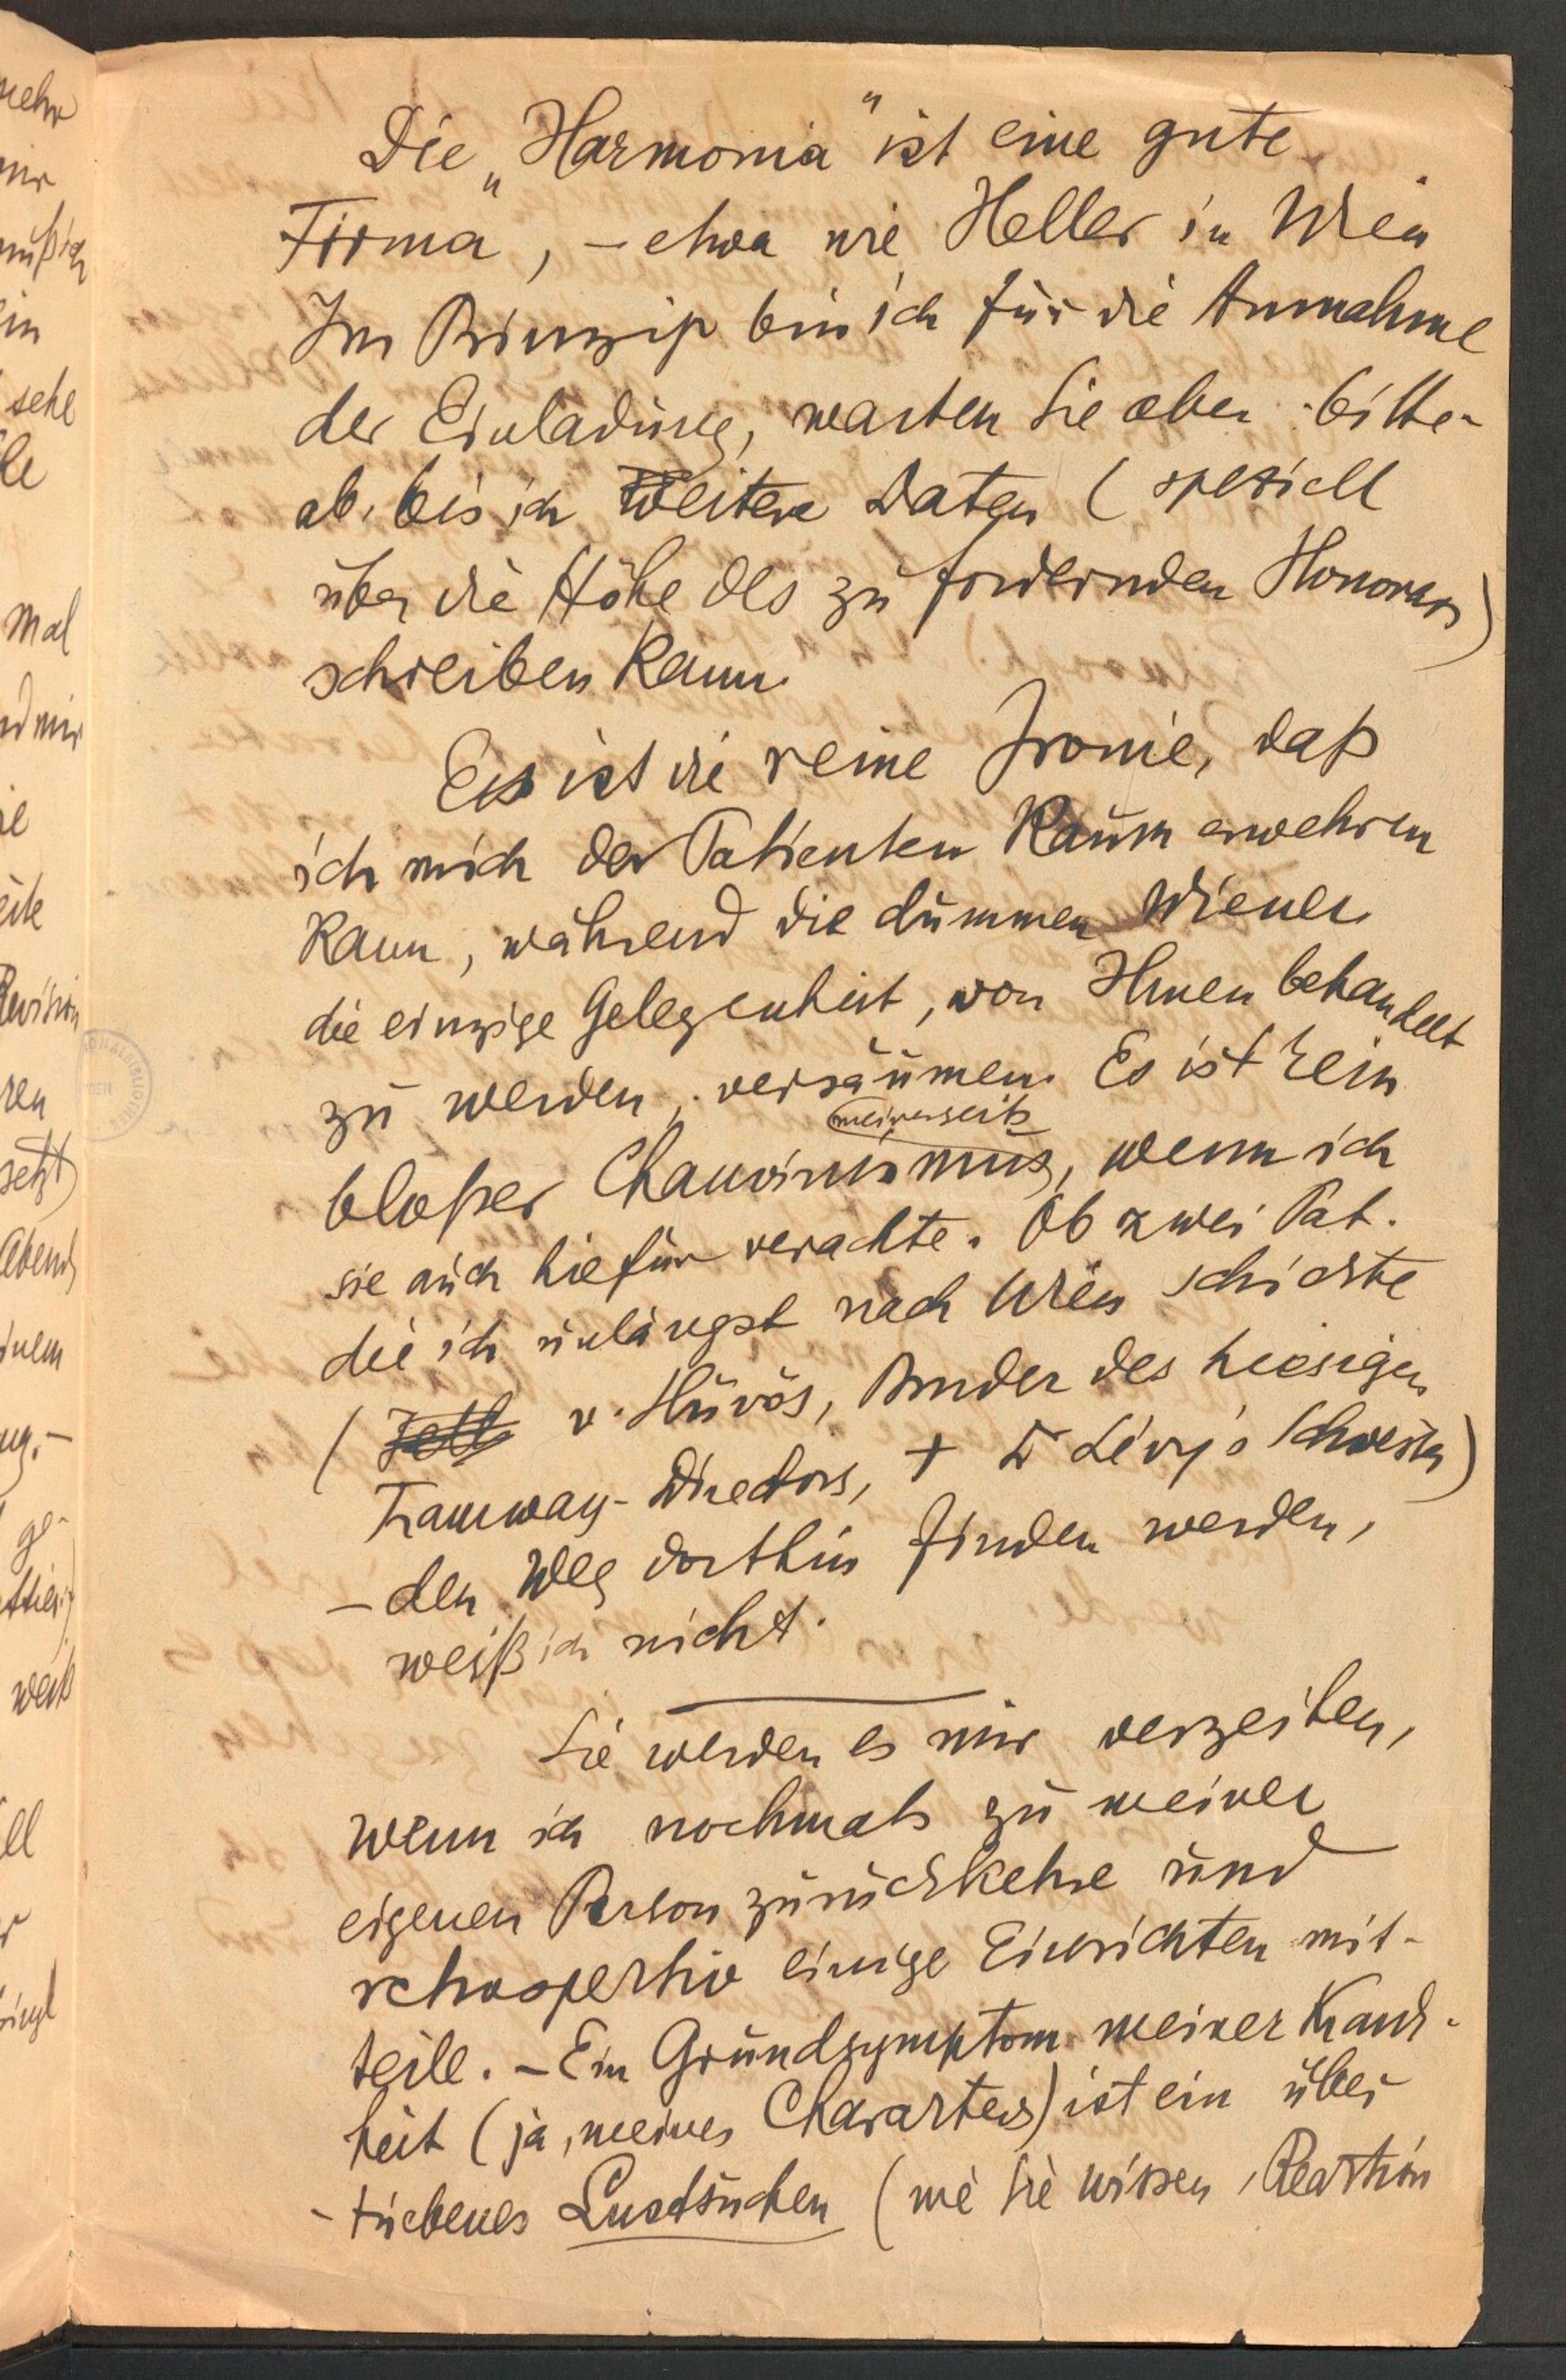 Die „Harmonia" ist eine gute
Firma, – etwa wie Heller in Wien
Im Prinzip bin ich für die Annahme
der Einladung, warten Sie aber bitte
ab, bis ich weitere Daten (speziell
über die Höhe des zu fordernden Honorars)
schreiben kann.
Es ist die reine Ironie, daß
ich mich der Patienten kaum erwehren
kann, während die dummen Wiener
die einzige Gelegenheit, von Ihnen behandelt
zu werden, versäumen. Es ist kein
meinerseits
bloßer Chauvinismus, wenn ich
sie auch hiefür verachte. Ob zwei Pat.
die ich unlängst nach Wien schickte
( v. Hüvös, Bruder des hiesigen
Tramway-Directors, + Dr Lévy's Schwester)
– den Weg dorthin finden werden,
weiß ich nicht.
Sie werden es mir verzeihen,
wenn ich nochmals zu meiner
eigenen Person zurückkehre und
retrospektiv einige Einsichten mit-
teile. – Ein Grundsymptom meiner Krank-
heit (ja, meines Charakters) ist ein über
-triebenes Lustsuchen (wie Sie wissen, Reaktion
mehr
mir
muß ich
sehe
mal
Revision
setzt)
Abends
ge-
weiß